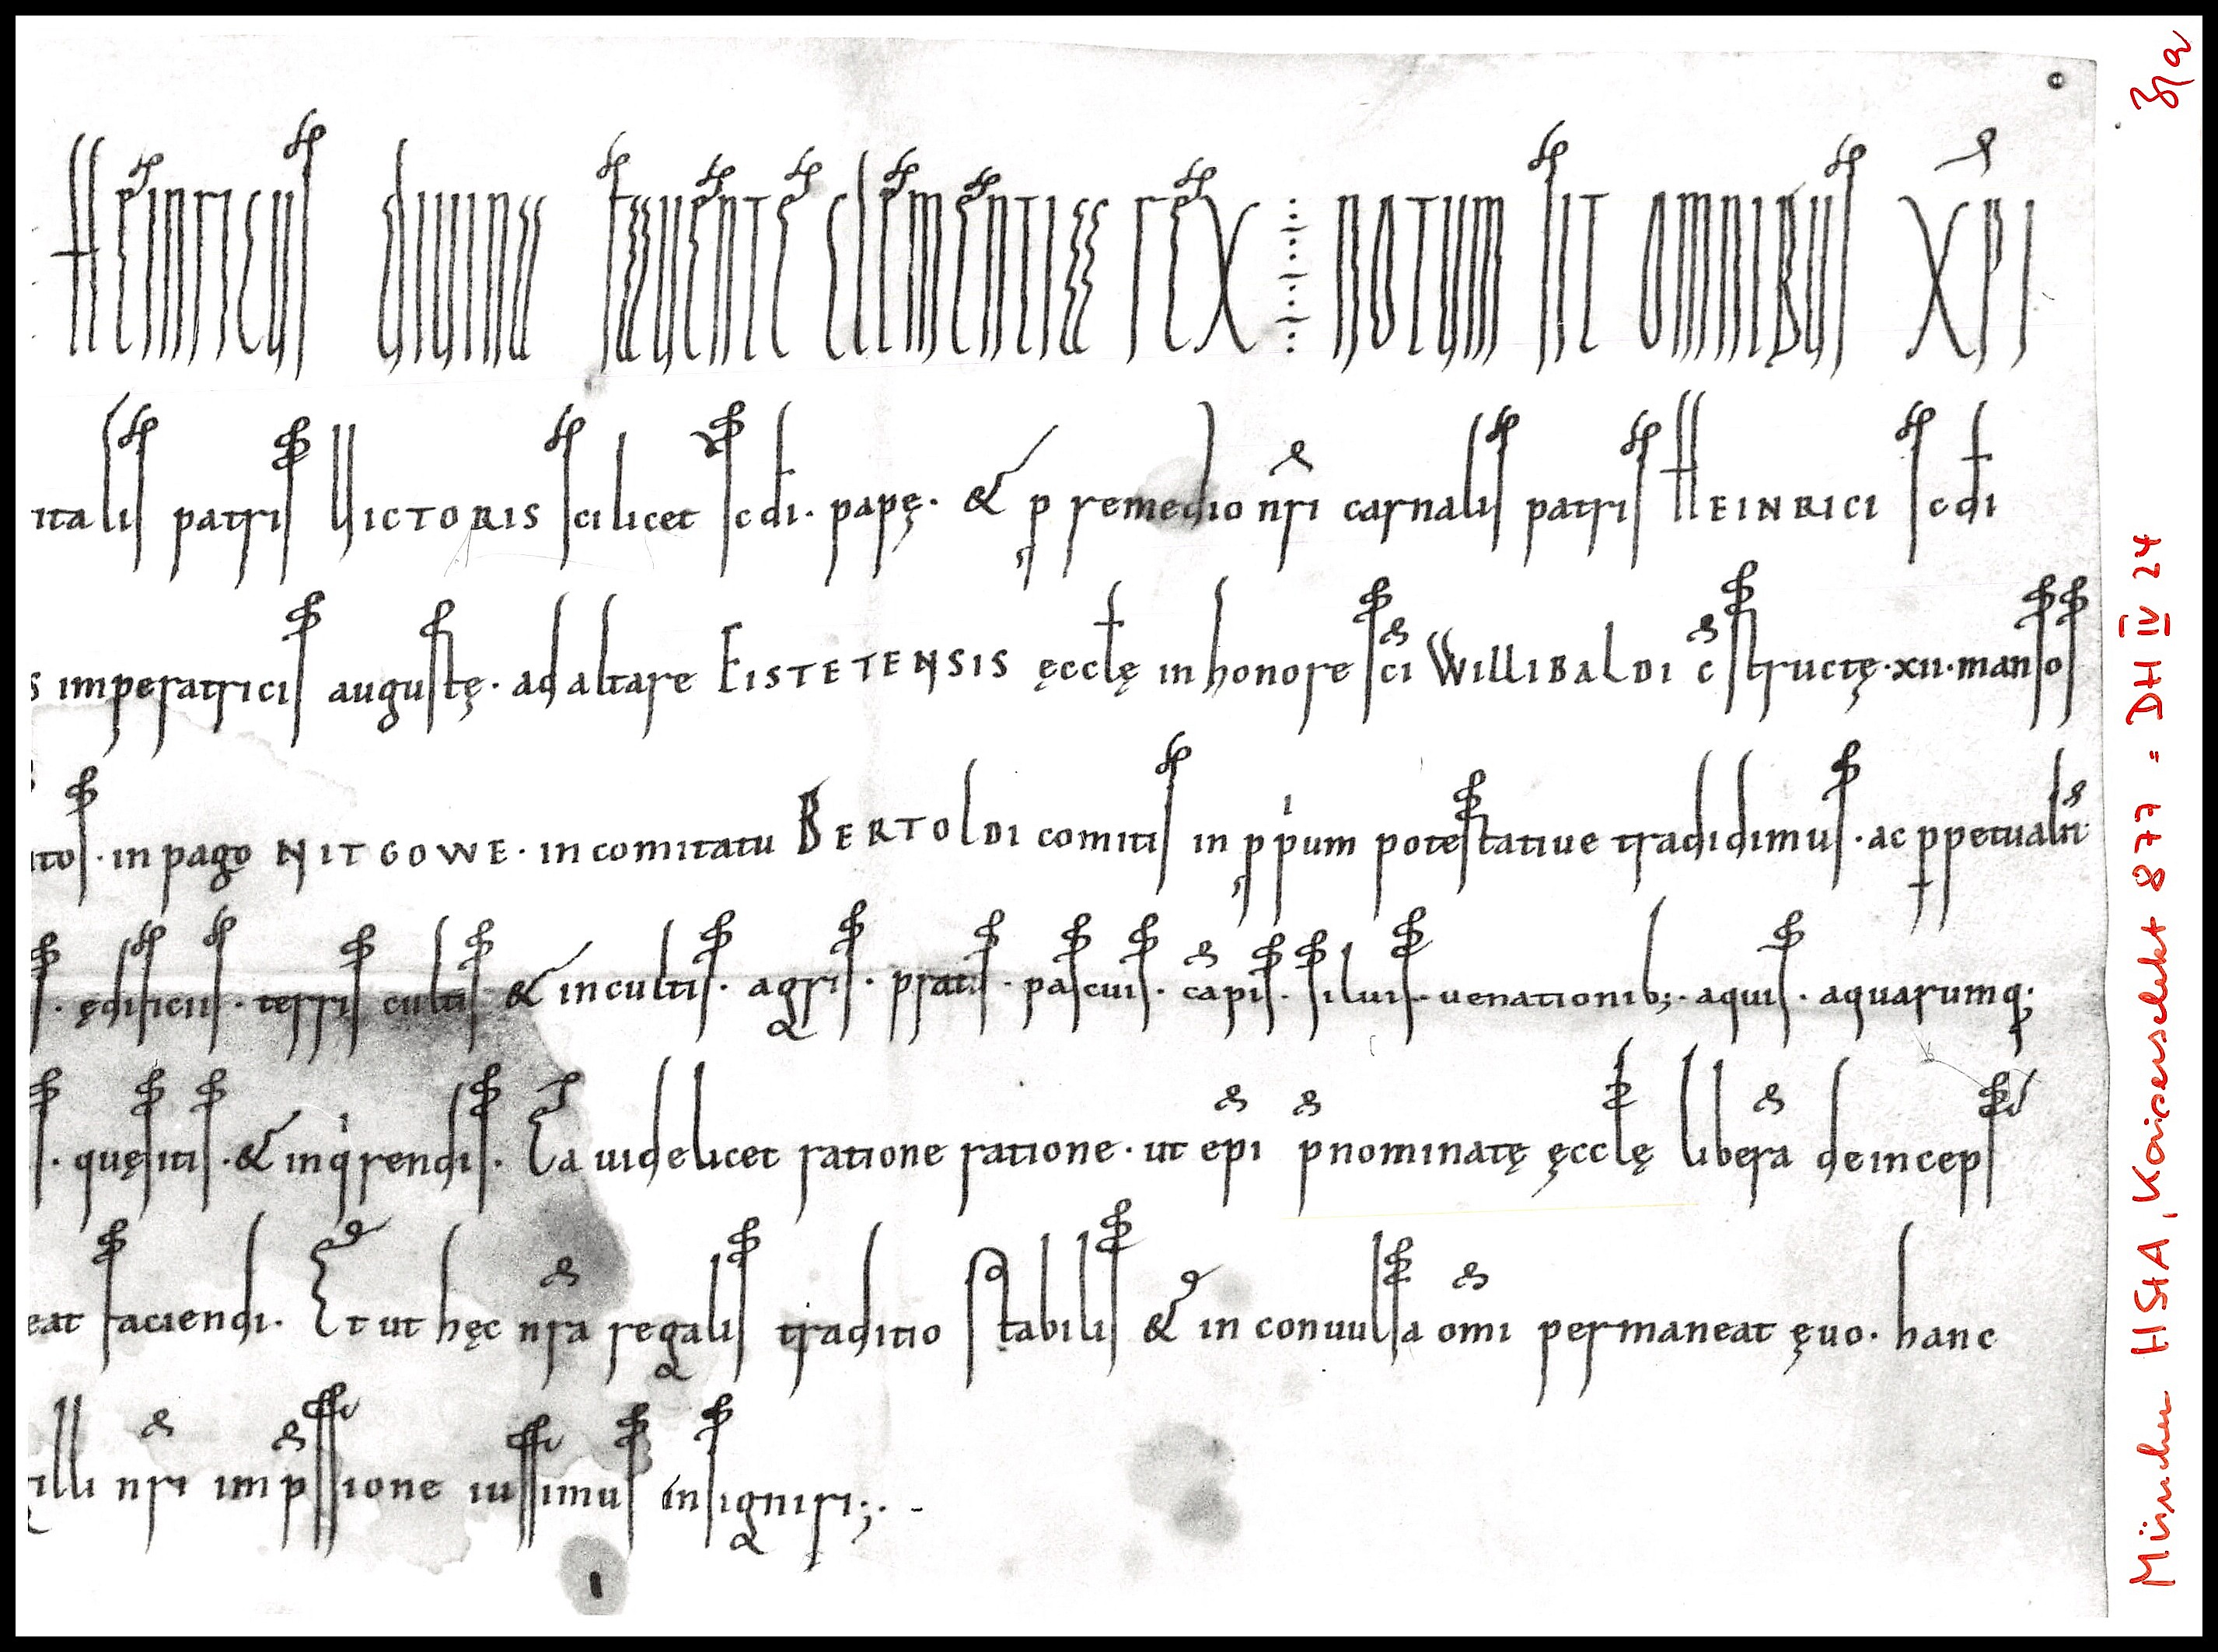 HEINRICUS DIUINA FAUENTE CLEMENTIA REX NOTUM SIT OMNIBUS XPI
italis patris UICTORIS scilicet scdi. papę. & p remedio nr̅i carnalis patris HEINRICI scdi
s imperatricis augustę. ad altare EISTETENSIS ęcclę in honore sc̅i WILLIBALDI c̅structę. xii. mansos
itos. in pago NITGOWE. in comitatu BERTOLDI comitis in ppͥum potestatiue tradidimus. ac ppetualit̅
s. ędificiis. terris cultis & incultis. agris. pratis. pascuis. ca̅pis. siluis. uenationib; aquis. aquarumq;
s. quęsitis. & inqͥrendis. Ea uidelicet ratione ratione. ut ep̅i p̅nominatę ęcclę libera̅ deinceps
eat faciendi. Et ut hęc nr̅a regalis traditio stabilis & inconuulsa om̅i permaneat ęuo. hanc
illi nr̅i imp̅ssione iussimus insigniri;. -
München HStA, Kaiserselekt 877 = DH IV 24
3/a